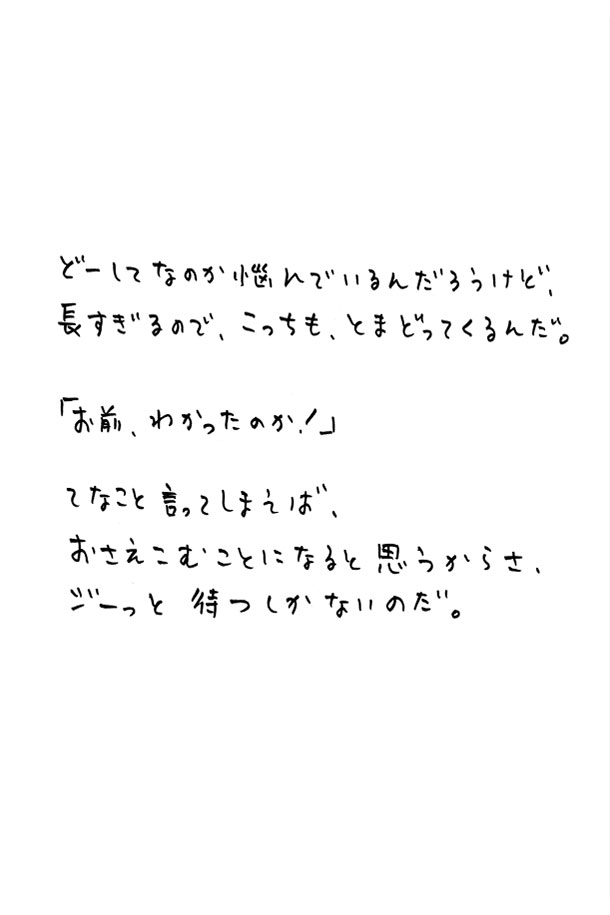 どーしてなのか悩んでいるんだろうけど、
長すぎるので、こっちも、とまどってくるんだ。
「お前、わかったのか!」
てなこと言ってしまえば、
おさえこむことになると思うからさ、
ジーっと待つしかないのだ。